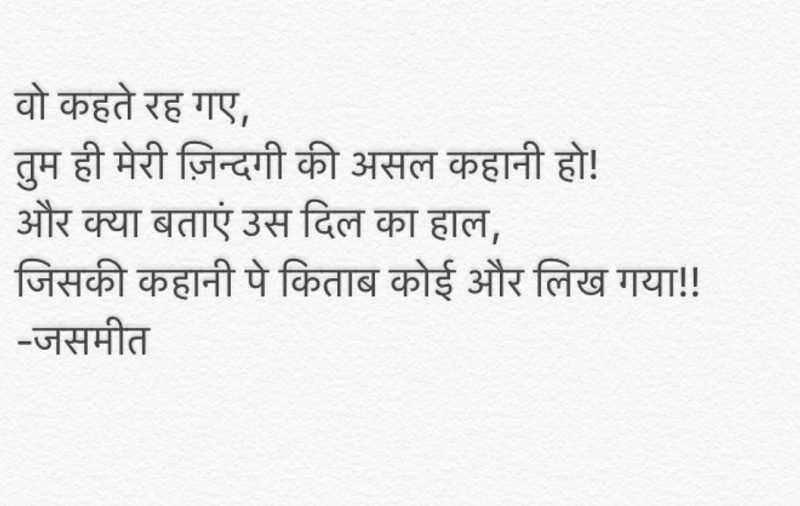 वो कहते रह गए,
तुम ही मेरी ज़िन्दगी की असल कहानी हो!
और क्या बताएं उस दिल का हाल,
जिसकी कहानी पे किताब कोई और लिख गया!!
-जसमीत